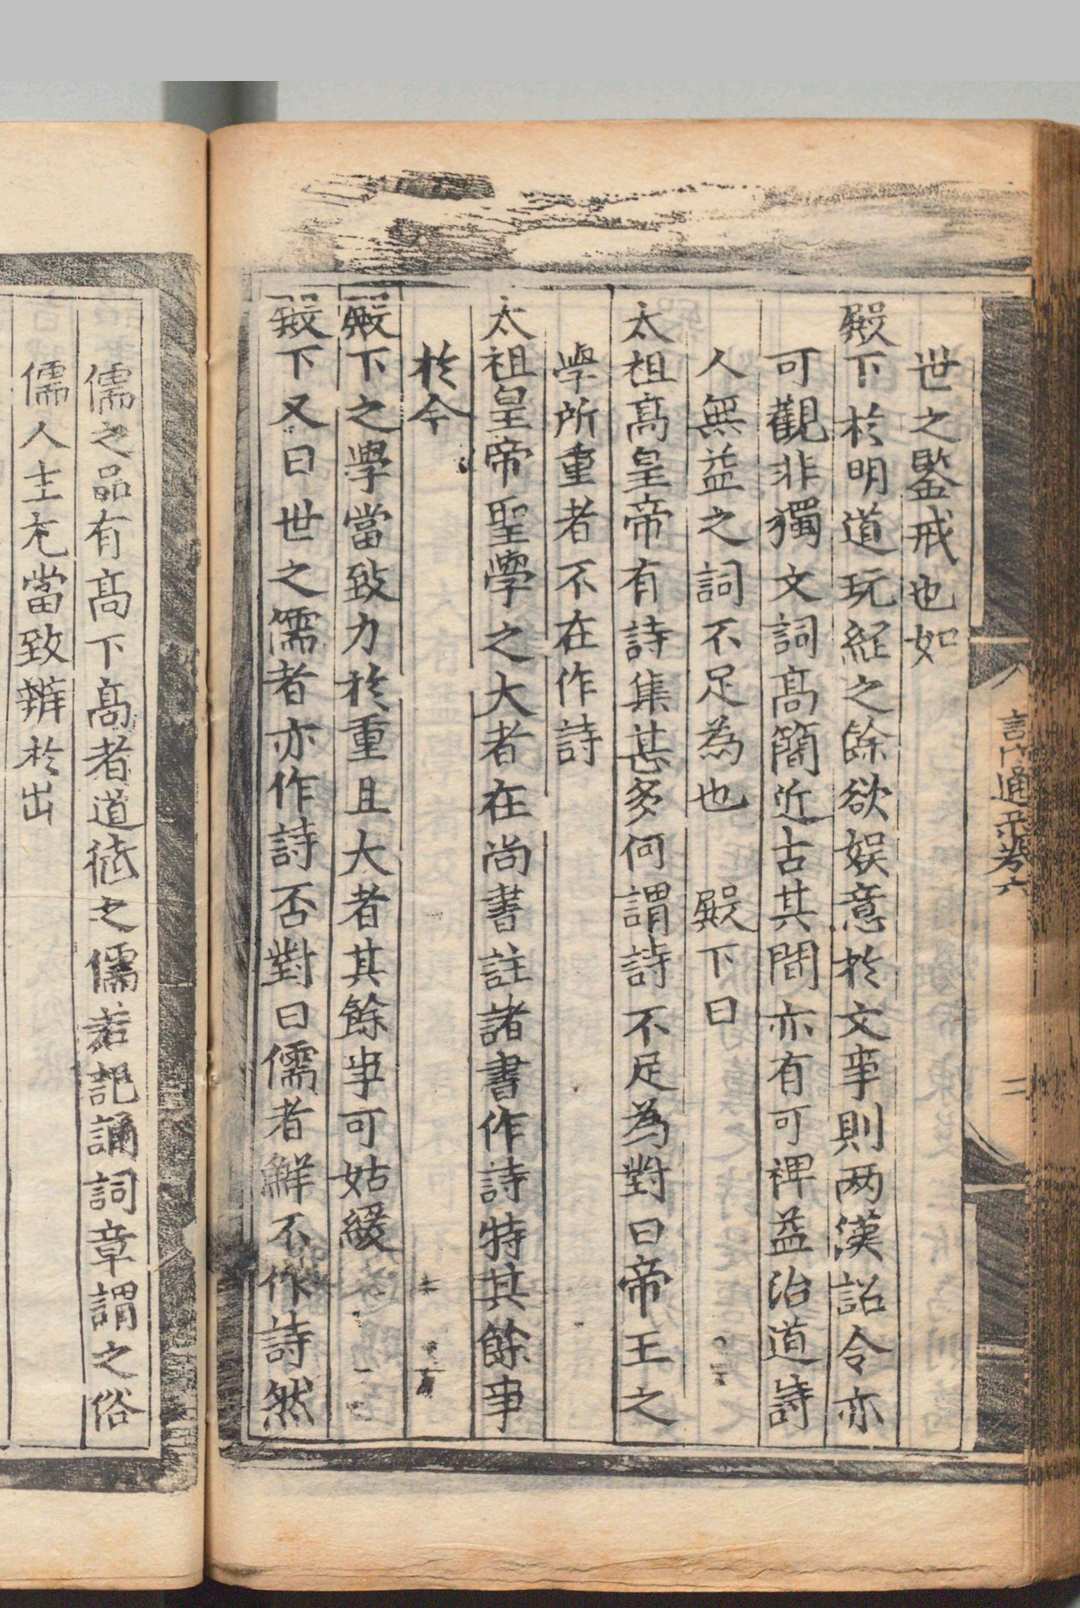 世之鑒戒也如
殿下於明道玩經之餘欲娛意於文事則两漢詔令亦
可觀非獨文詞髙簡近古其間亦有可裨益治道詩
人無益之詞不足為也　殿下曰
太祖髙皇帝有詩集甚多何謂詩不足為對曰帝王之
學所重者不在作詩
太祖皇帝聖學之大者在尚書註諸書作詩特其餘事
於今
殿下之學當致力於重且大者其餘事可姑緩
殿下又曰世之儒者亦作詩否對曰儒者鮮不作詩然
儒之品有髙下髙者道德之儒若記誦詞章謂之俗
儒人主尤當致辨於出
通
卷六
二